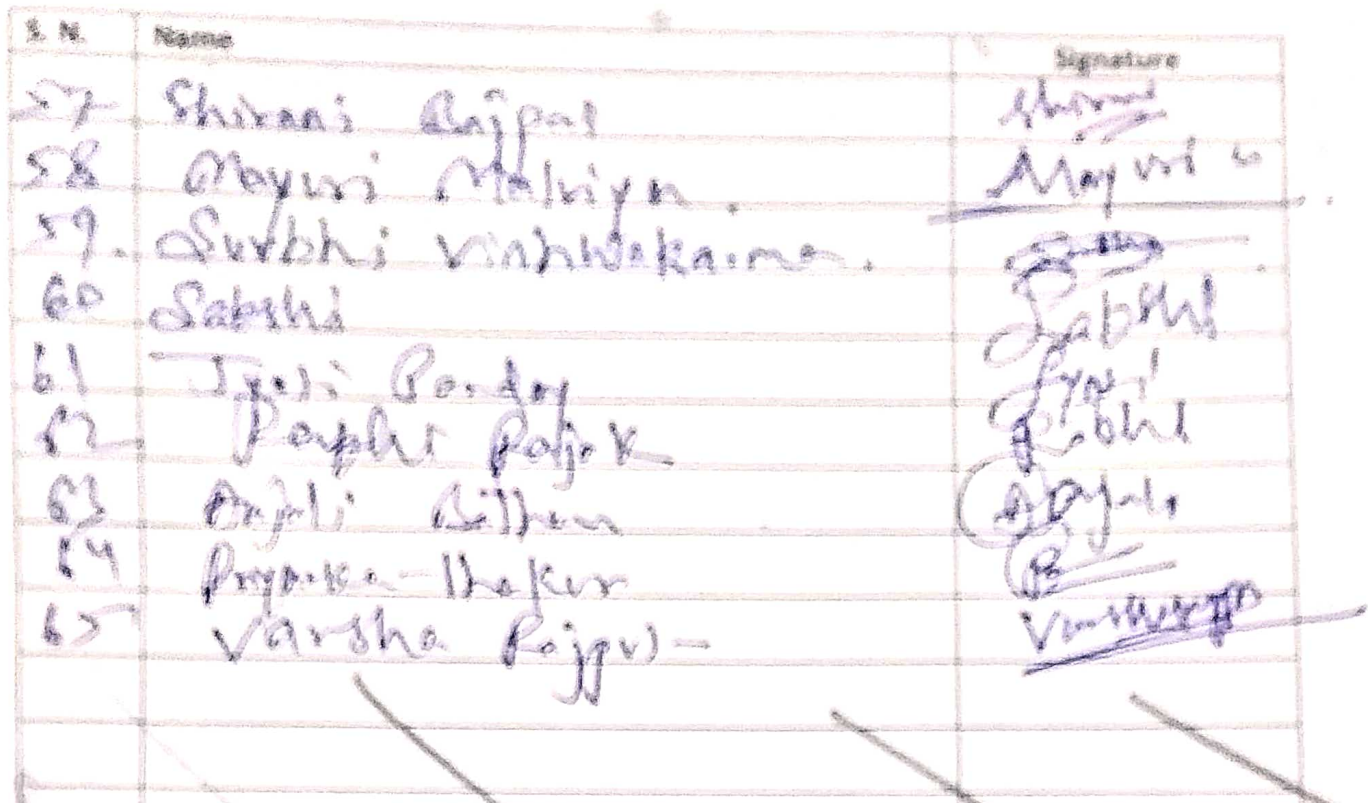 S. N. Name Signature
57 Shivani Rajpal Shivani
58 Mayuri Malviya. Mayuri
59. Surbhi Vishwakarma.
60 Sakshi Sakshi
61 Jyoti Pandey Jyoti
62 Rajak
63 Anjali Anjali
64 Priyanka Thakur
65 Varsha Rajput